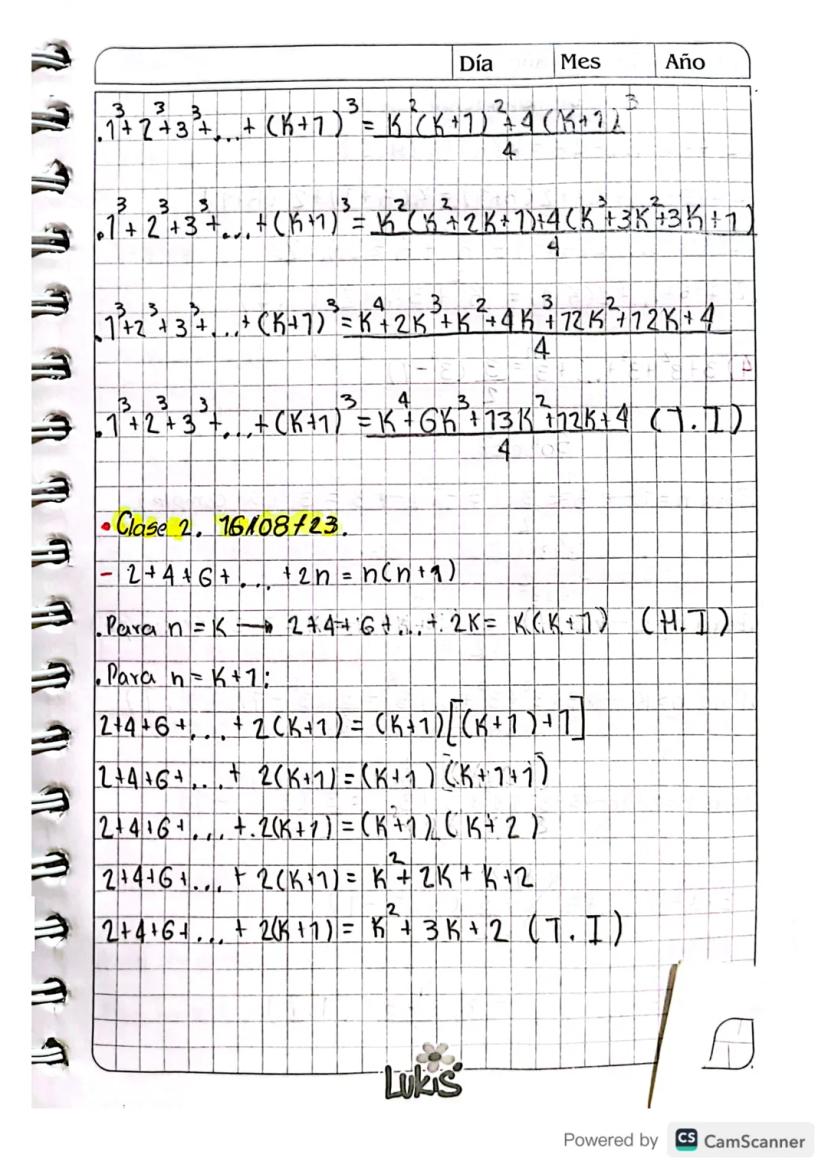 Día Mes Año
.1³+2³+3³+...+(K+1)³=K²(K+1)²+4(K+1)³
4
.1³+2³+3³+...+(K+1)³=K²(K²+2K+1)+4(K³+3K²+3K+1)
4
.1³+2³+3³+...+(K+1)³=K⁴+2K³+K²+4K³+12K²+12K+4
4
.1³+2³+3³+...+(K+1)³=K⁴+6K³+13K²+12K+4 (T.I)
4
• Clase 2. 16/08/23.
- 2+4+6+...+2n=n(n+1)
.Para n=K → 2+4+6+...+2K=K(K+1) (H.I)
.Para n=K+1:
2+4+6+...+2(K+1)=(K+1)[(K+1)+1]
2+4+6+...+2(K+1)=(K+1)(K+1+1)
2+4+6+...+.2(K+1)=(K+1)(K+2)
2+4+6+...+2(K+1)=K²+2K+K+2
2+4+6+...+2(K+1)=K²+3K+2 (T.I)
Lukis
Powered by CS CamScanner